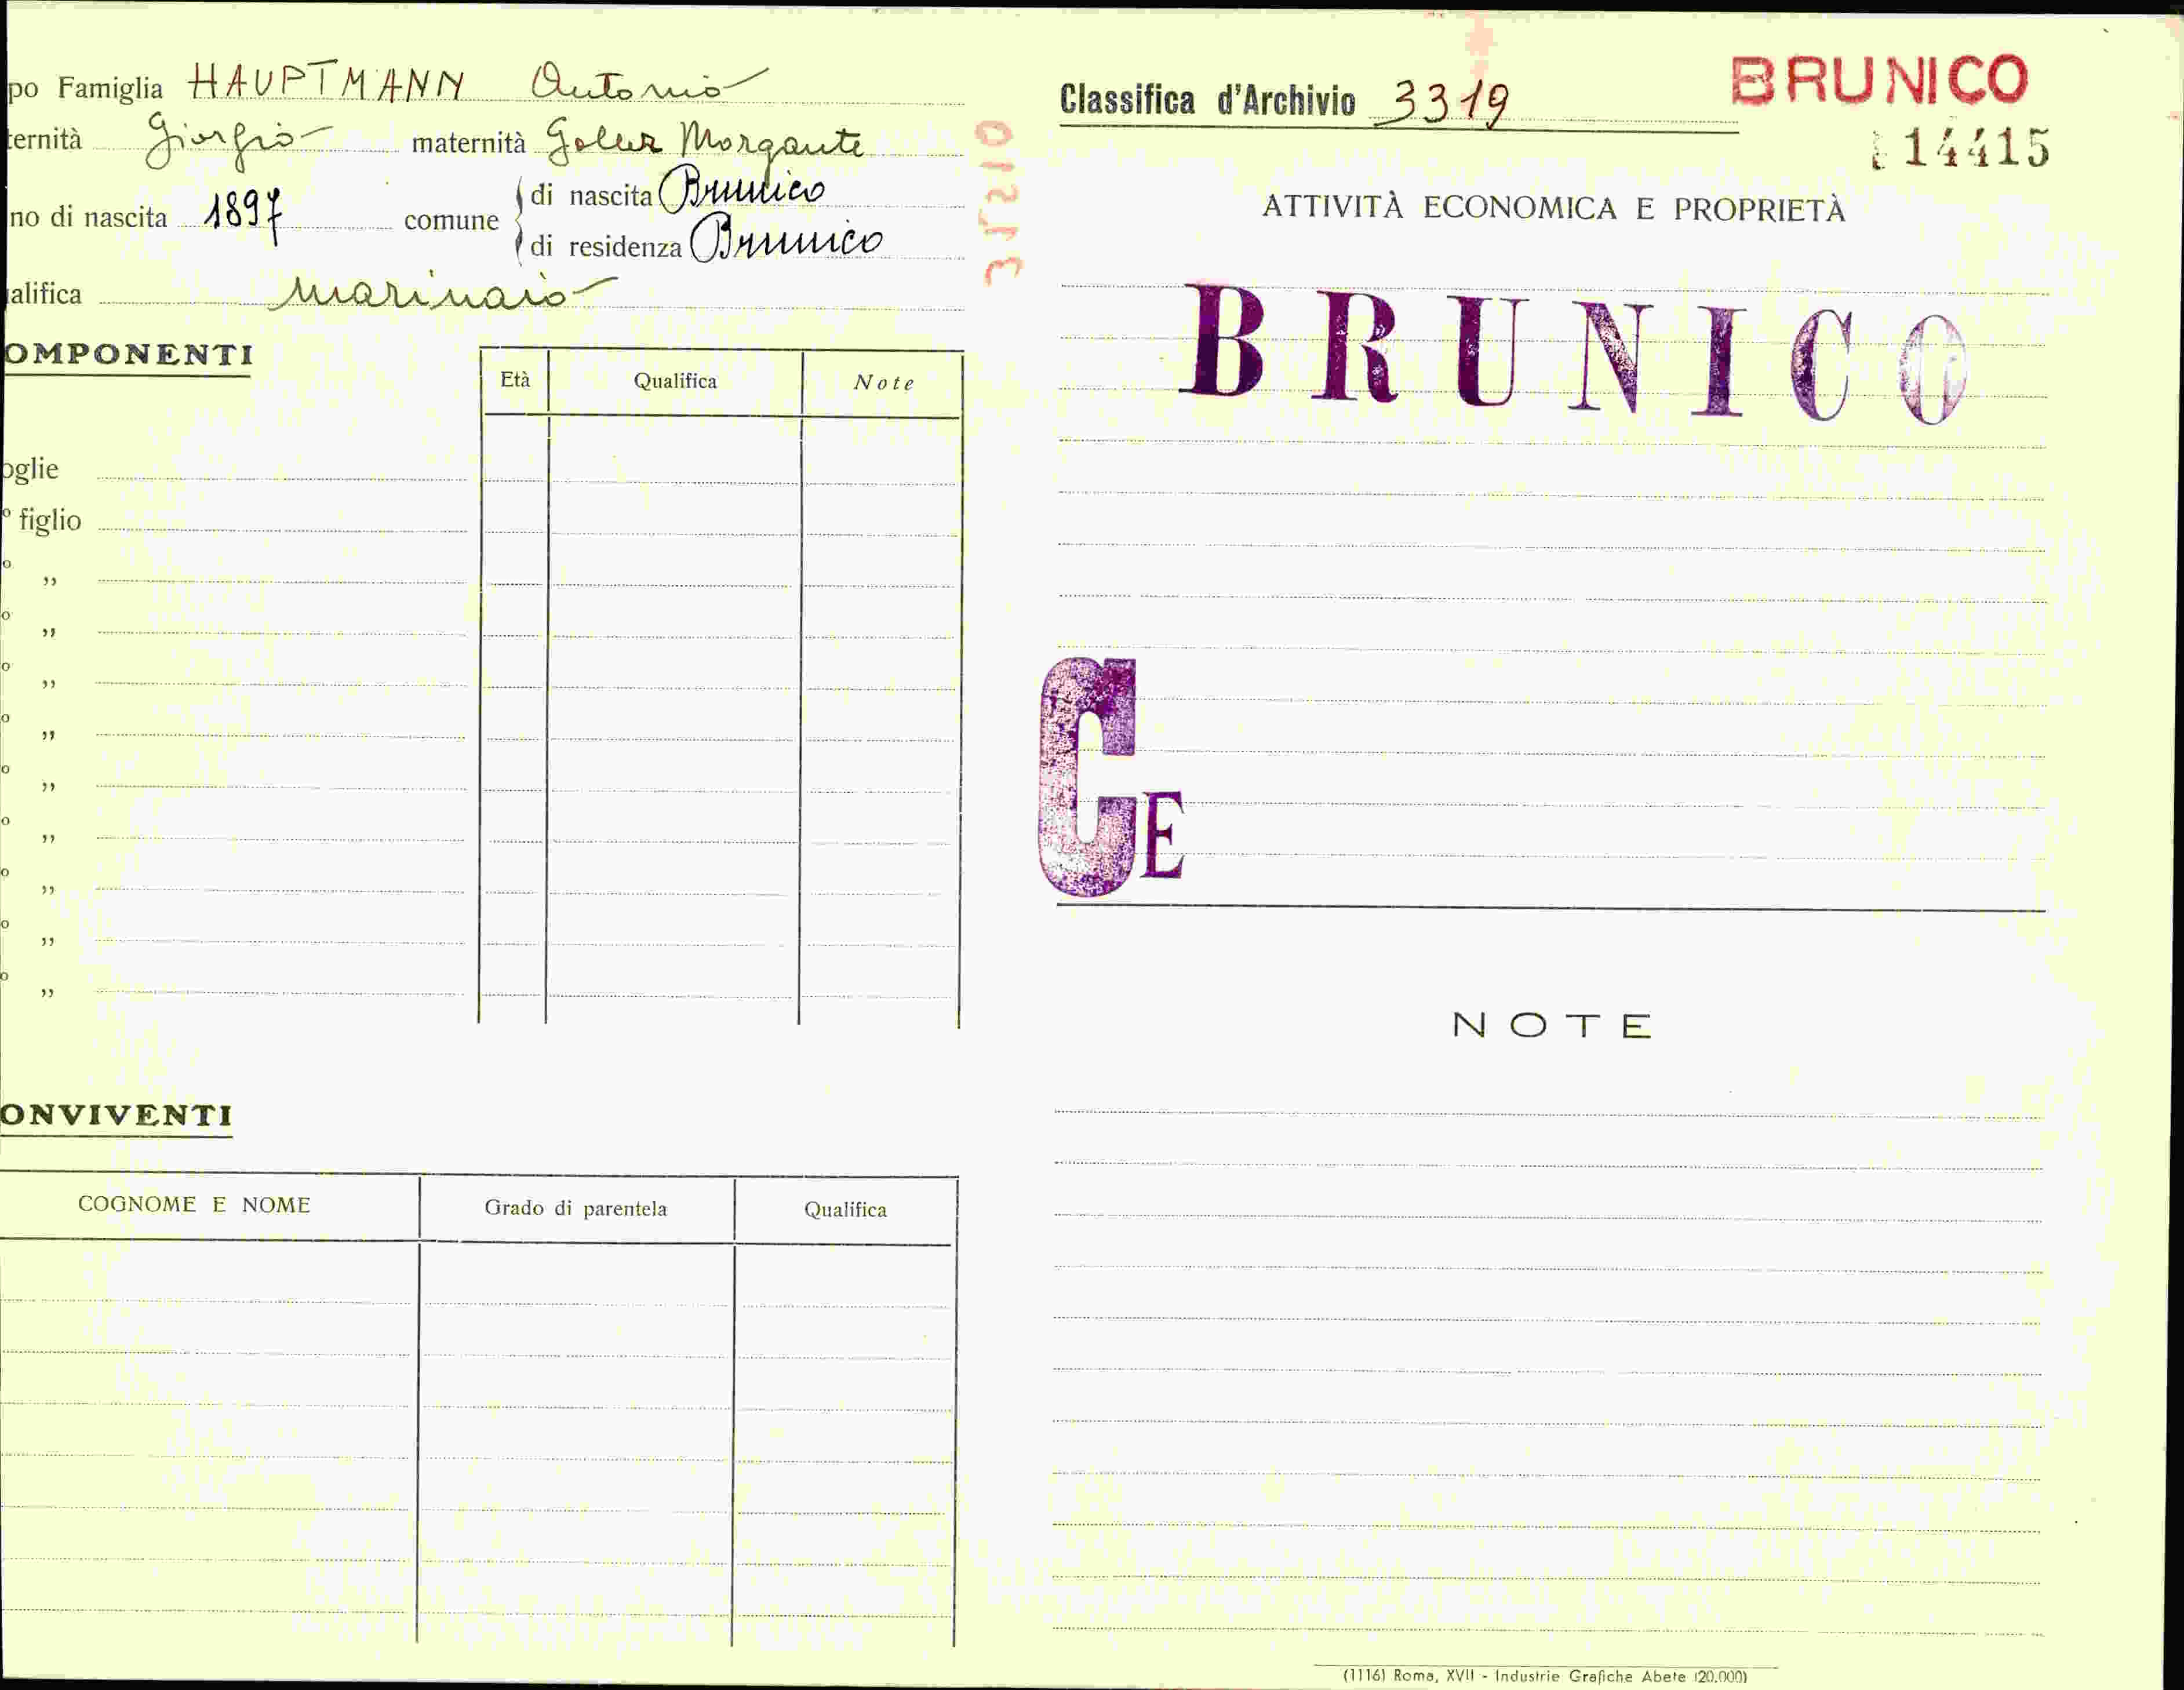 po Famiglia HAUPTMANN Antonio
ternità Giorgio maternità Morgante
no di nascita 1897 comune di nascita Brunico
di residenza Brunico
alifica marinaio
OMPONENTI
Età Qualifica Note
oglie
º figlio
o
„
o
„
o
„
o
„
o
„
o
„
o
„
o
„
o
„
ONVIVENTI
COGNOME E NOME Grado di parentela Qualifica
Classifica d'Archivio 3319
BRUNICO
14415
ATTIVITÀ ECONOMICA E PROPRIETÀ
BRUNICO
CE
NOTE
(1116) Roma, XVII - Industrie Grafiche Abete (20.000)